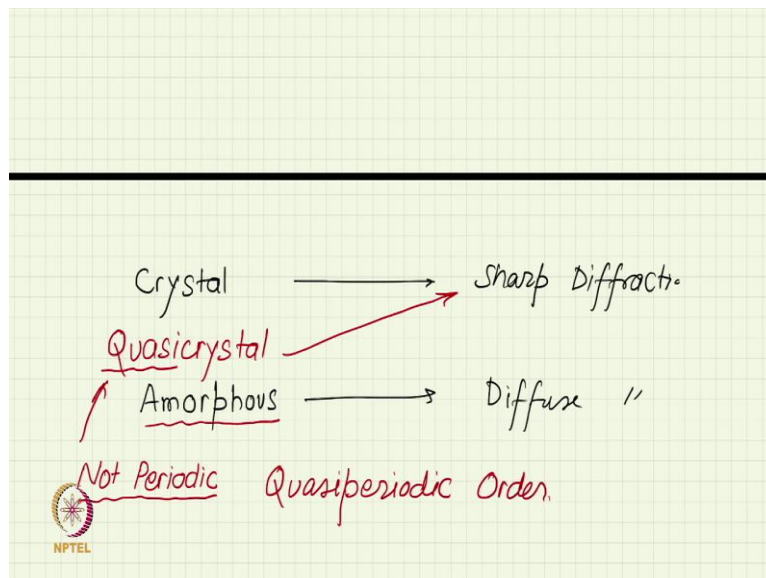 Crystal → Sharp Diffracti.
Quasicrystal
Amorphous → Diffuse "
Not Periodic Quasiperiodic Order.
NPTEL